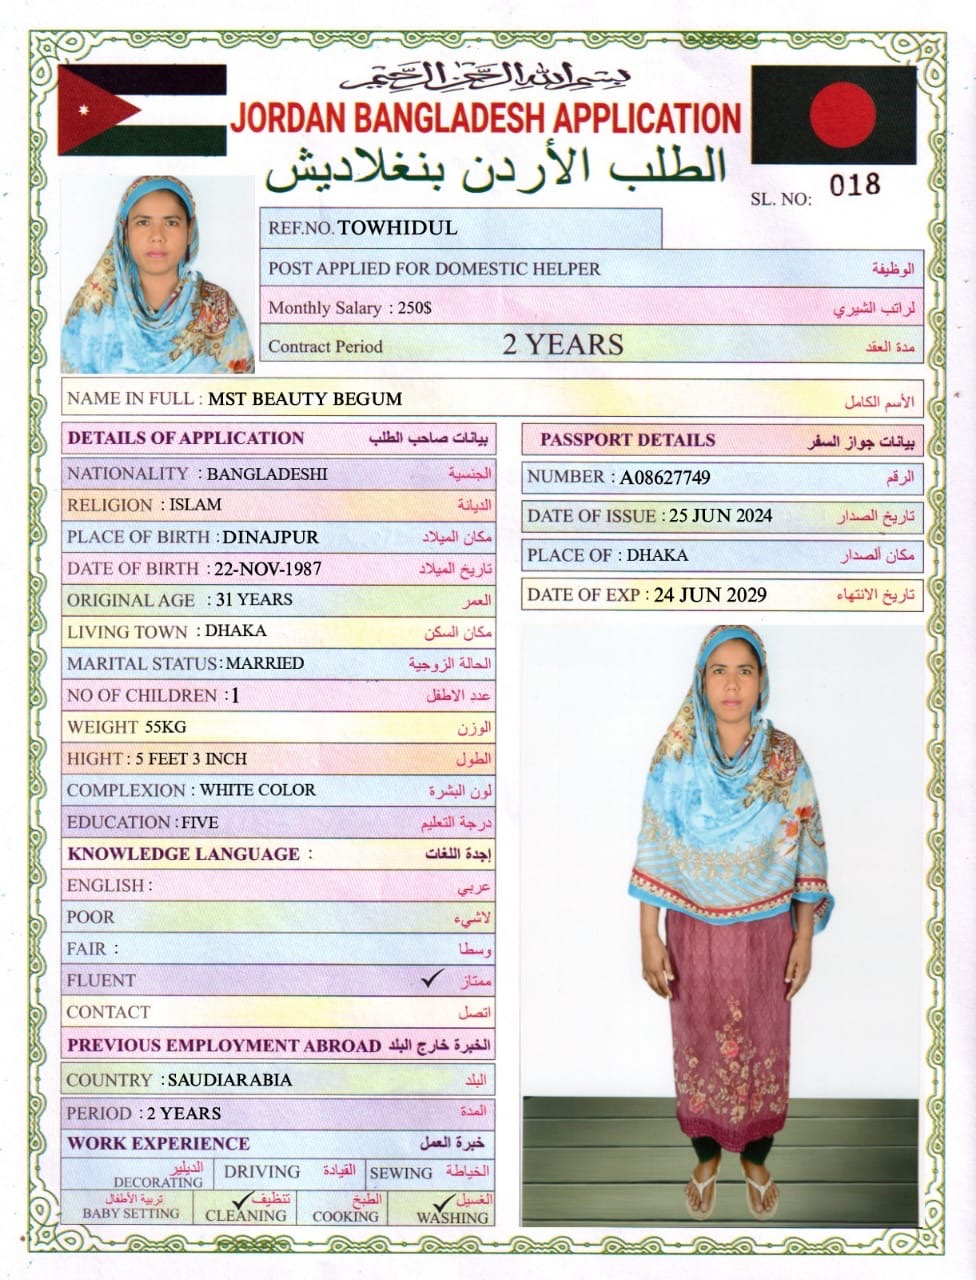 بسم الله الرحمن الرحيم
JORDAN BANGLADESH APPLICATION
الطلب الأردن بنغلاديش
SL. NO: 018
REF.NO. TOWHIDUL
POST APPLIED FOR DOMESTIC HELPER الوظيفة
Monthly Salary : 250$ لراتب الشيري
Contract Period 2 YEARS مدة العقد
NAME IN FULL : MST BEAUTY BEGUM الأسم الكامل
DETAILS OF APPLICATION بيانات صاحب الطلب
NATIONALITY : BANGLADESHI الجنسية
RELIGION : ISLAM الديانة
PLACE OF BIRTH : DINAJPUR مكان الميلاد
DATE OF BIRTH : 22-NOV-1987 تاريخ الميلاد
ORIGINAL AGE : 31 YEARS العمر
LIVING TOWN : DHAKA مكان السكن
MARITAL STATUS: MARRIED الحالة الزوجية
NO OF CHILDREN : 1 عدد الاطفل
WEIGHT 55KG الوزن
HIGHT : 5 FEET 3 INCH الطول
COMPLEXION : WHITE COLOR لون البشرة
EDUCATION : FIVE درجة التعليم
KNOWLEDGE LANGUAGE : إجدة اللغات
ENGLISH : عربي
POOR لاشيء
FAIR : وسطا
FLUENT ✓ ممتاز
CONTACT اتصل
PREVIOUS EMPLOYMENT ABROAD الخبرة خارج البلد
COUNTRY : SAUDIARABIA البلد
PERIOD : 2 YEARS المدة
WORK EXPERIENCE خبرة العمل
الديلير DECORATING DRIVING القيادة SEWING الخياطة
تربية الأطفال BABY SETTING ✓ تنظيف CLEANING الطبخ COOKING ✓ الغسيل WASHING
PASSPORT DETAILS بيانات جواز السفر
NUMBER : A08627749 الرقم
DATE OF ISSUE : 25 JUN 2024 تاريخ الصدار
PLACE OF : DHAKA مكان ألصدار
DATE OF EXP : 24 JUN 2029 تاريخ الانتهاء